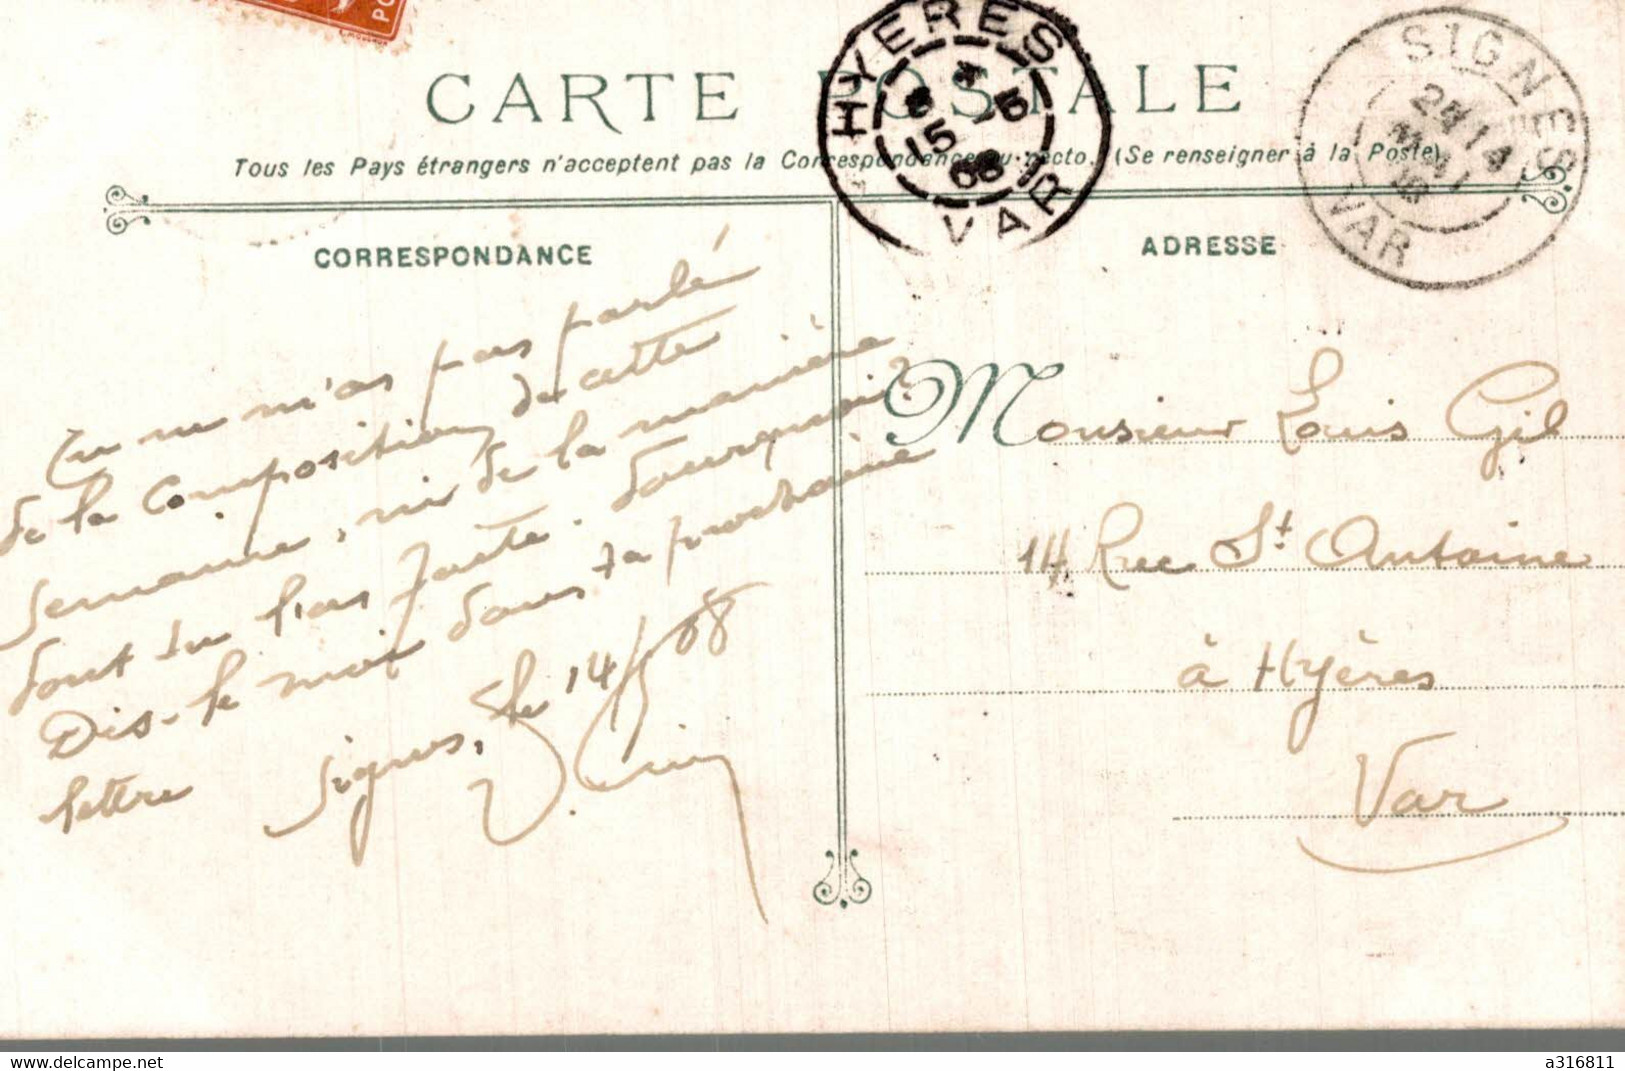 PO
CARTE POSTALE
Tous les Pays étrangers n'acceptent pas la Correspondance au recto. (Se renseigner à la Poste)
HYERES
15 5
08
VAR
SIGNES
14
MAI
VAR
CORRESPONDANCE
ADRESSE
Tu ne m'as pas parlé
de la Composition de cette
Semaine, ni de la manière
dont tu l'as faite. Pourquoi?
Dis-le moi dans ta prochaine
lettre
Signes, le 14/5/08
Monsieur Louis Gil
14 Rue St Antoine
à Hyères
Var
delcampe.net
a316811